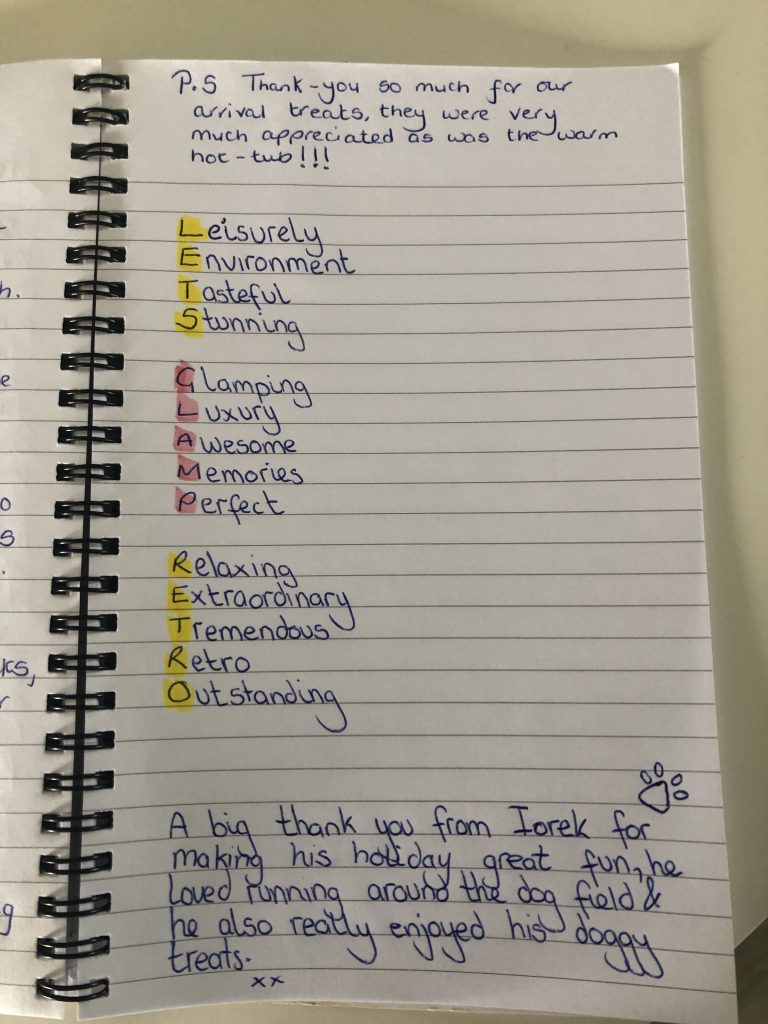 P.S Thank-you so much for our
arrival treats, they were very
much appreciated as was the warm
hot-tub!!!
Leisurely
Environment
Tasteful
Stunning
Glamping
Luxury
Awesome
Memories
Perfect
Relaxing
Extraordinary
Tremendous
Retro
Outstanding
A big thank you from Iorek for
making his holiday great fun, he
loved running around the dog field &
he also really enjoyed his doggy
treats.
xx